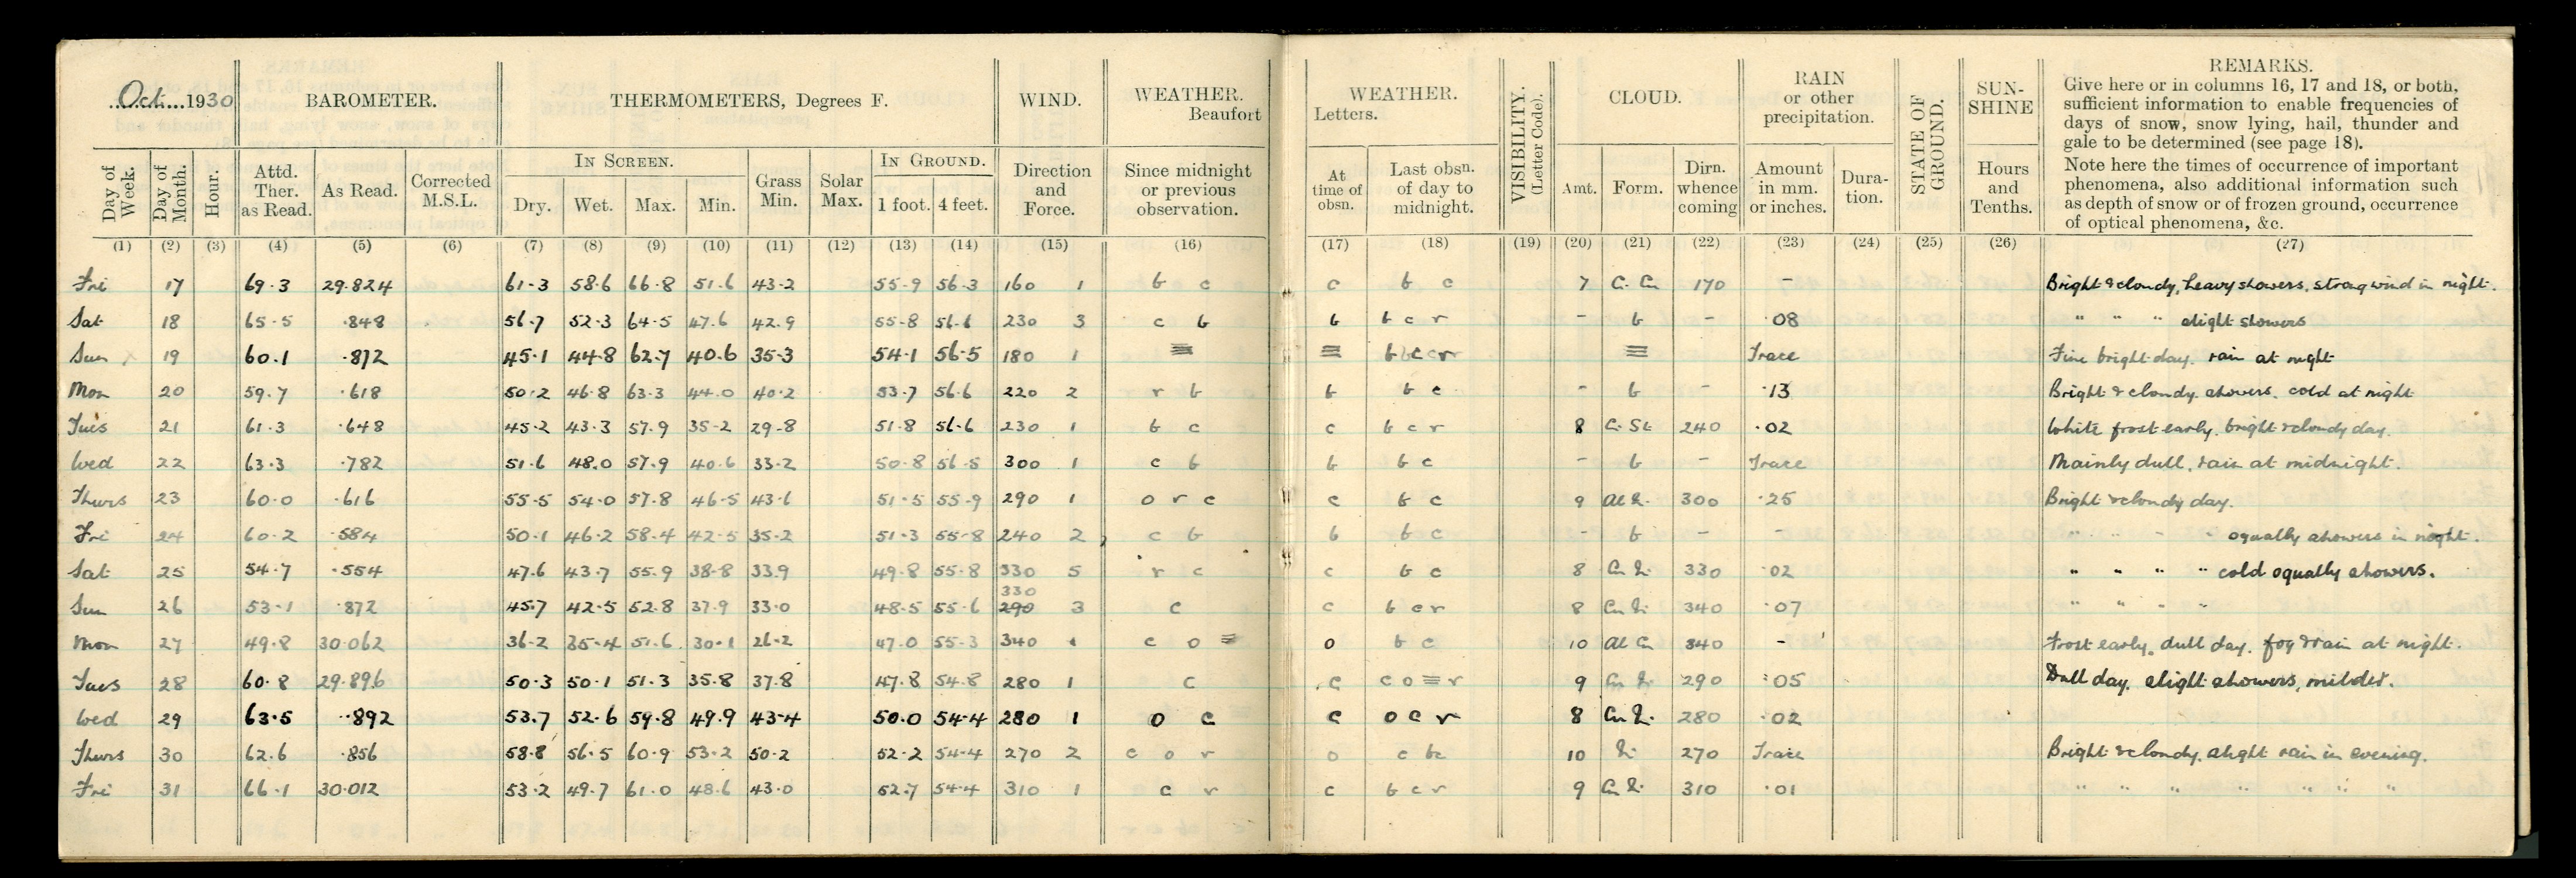 Oct. 1930
BAROMETER.
THERMOMETERS, Degrees F.
WIND.
WEATHER.
Beaufort
WEATHER.
Letters.
VISIBILITY.
(Letter Code).
CLOUD.
RAIN
or other
precipitation.
STATE OF
GROUND.
SUN-
SHINE
REMARKS.
Give here or in columns 16, 17 and 18, or both,
sufficient information to enable frequencies of
days of snow, snow lying, hail, thunder and
gale to be determined (see page 18).
Note here the times of occurrence of important
phenomena, also additional information such
as depth of snow or of frozen ground, occurrence
of optical phenomena, &c.
Day of Week.
Day of Month.
Hour.
Attd. Ther. as Read.
As Read.
Corrected M.S.L.
IN SCREEN.
Dry. Wet. Max. Min.
Grass Min.
Solar Max.
IN GROUND.
1 foot. 4 feet.
Direction and Force.
Since midnight or previous observation.
At time of obsn.
Last obsn. of day to midnight.
Amt. Form.
Dirn. whence coming
Amount in mm. or inches.
Dura- tion.
Hours and Tenths.
(1) (2) (3) (4) (5) (6) (7) (8) (9) (10) (11) (12) (13) (14) (15) (16) (17) (18) (19) (20) (21) (22) (23) (24) (25) (26) (27)
Fri 17 69.3 29.824 61.3 58.6 66.8 51.6 43.2 55.9 56.3 160 1 b c c b c 7 170 - Bright & cloudy, heavy showers, strong wind in night.
Sat 18 65.5 .848 56.7 52.3 64.5 47.6 42.9 55.8 56.6 230 3 c b b b c r - b - .08 " " " slight showers
Sun 19 60.1 .872 45.1 44.8 62.7 40.6 35.3 54.1 56.5 180 1 ≡ ≡ b c r ≡ Trace Fine bright day. rain at night
Mon 20 59.7 .618 50.2 46.8 63.3 44.0 40.2 53.7 56.6 220 2 r b b b c - b - .13 Bright & cloudy. showers. cold at night
Tues 21 61.3 .648 45.2 43.3 57.9 35.2 29.8 51.8 56.6 230 1 b c c b c r 8 C. St. 240 .02 White frost early. bright & cloudy day.
Wed 22 63.3 .782 51.6 48.0 57.9 40.6 33.2 50.8 56.5 300 1 c b b b c - b - Trace Mainly dull, rain at midnight.
Thurs 23 60.0 .616 55.5 54.0 57.8 46.5 43.6 51.5 55.9 290 1 o r c c b c 9 300 .25 Bright & cloudy day.
Fri 24 60.2 .584 50.1 46.2 58.4 42.5 35.2 51.3 55.8 240 2 c b b b c - b - - " " " " squally showers in night.
Sat 25 54.7 .554 47.6 43.7 55.9 38.8 33.9 49.8 55.8 330 5 r c c b c 8 330 .02 " " " " cold squally showers.
Sun 26 53.1 .872 45.7 42.5 52.8 37.9 33.0 48.5 55.6 290 330 3 c c b c r 8 340 .07 " " " "
Mon 27 49.8 30.062 36.2 35.4 51.6 30.1 26.2 47.0 55.3 340 1 c o ≡ o b c 10 Al Cu 340 - Frost early, dull day. fog & rain at night.
Tues 28 60.8 29.896 50.3 50.1 51.3 35.8 37.8 47.8 54.8 280 1 c c c o ≡ r 9 290 .05 Dull day. slight showers, milder.
Wed 29 63.5 .892 53.7 52.6 59.8 49.9 43.4 50.0 54.4 280 1 o c c o c r 8 280 .02
Thurs 30 62.6 .856 58.8 56.5 60.9 53.2 50.2 52.2 54.4 270 2 c o r o c bc 10 270 Trace Bright & cloudy. slight rain in evening.
Fri 31 66.1 30.012 53.2 49.7 61.0 48.6 43.0 52.7 54.4 310 1 c r c b c r 9 310 .01 " " " " " " "